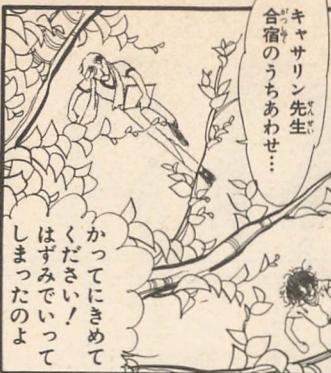 キャサリン先生
合宿のうちあわせ…
かってにきめて
ください!
はずみでいって
しまったのよ